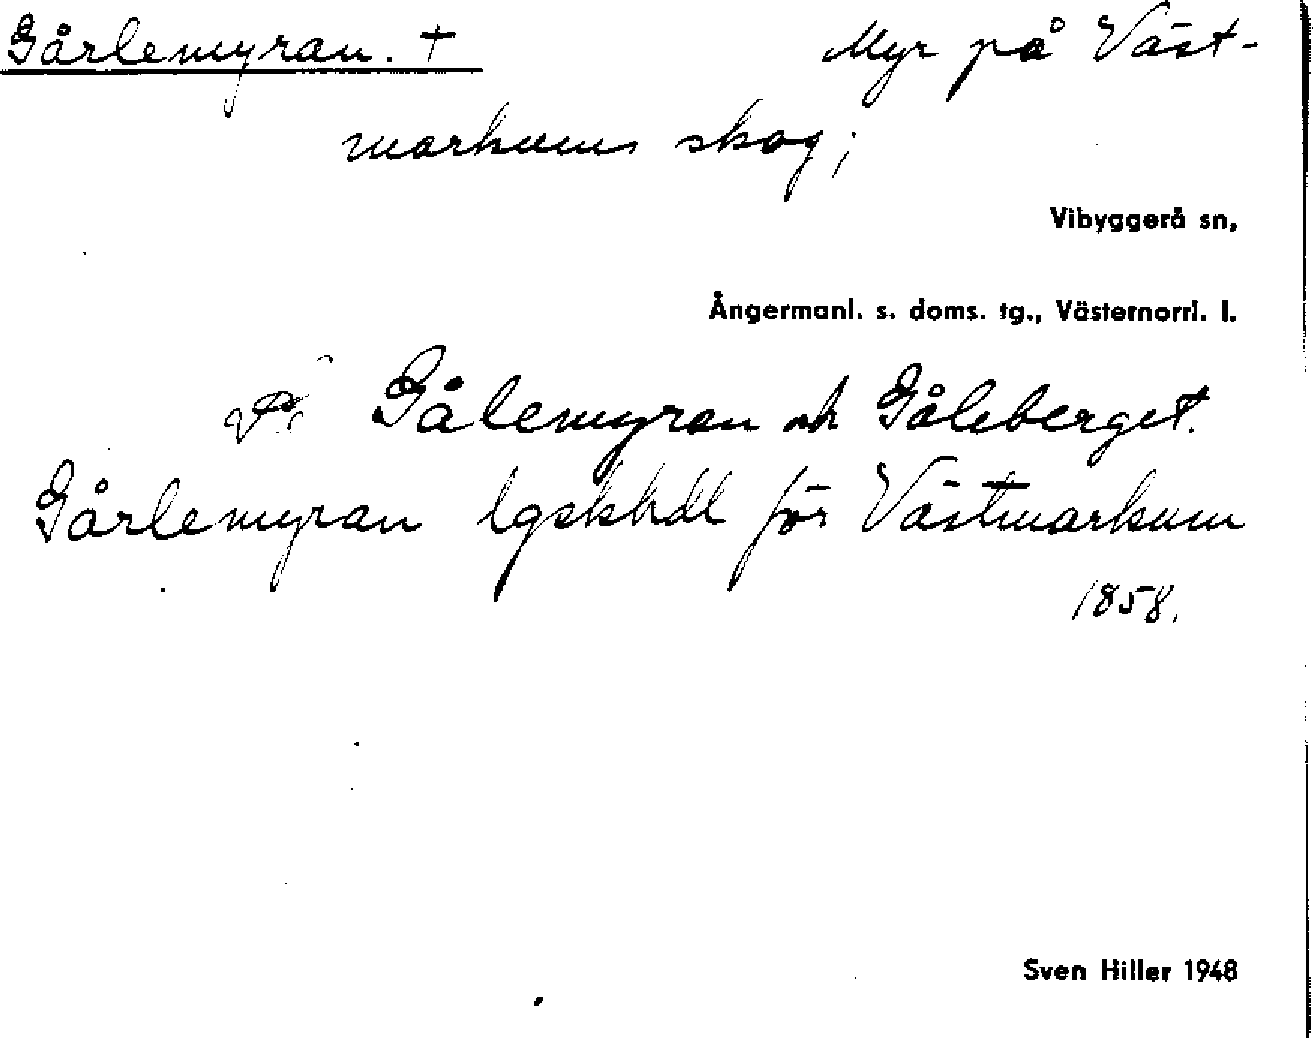 Gårlemyran. †
Myr på Väst-
markums skog;
Vibyggerå sn,
Ångermanl. s. doms. tg., Västernorrl. l.
Gålemyran och Gåleberget.
Gårlemyran lgskhdl för Västmarkum
1858.
Sven Hiller 1948